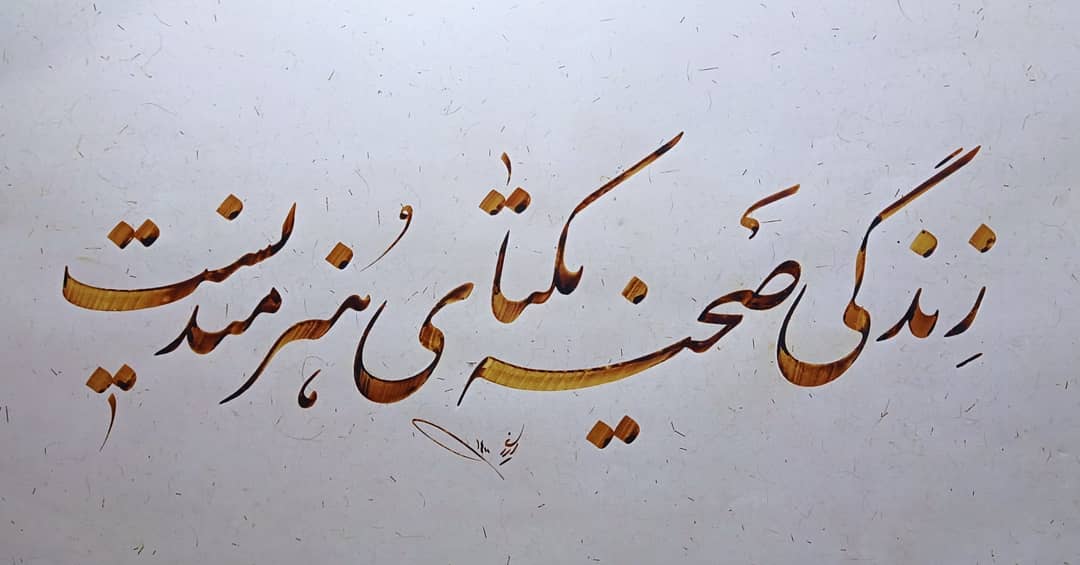 زِندگی صحنهٔ یکتای هُنرمندیست